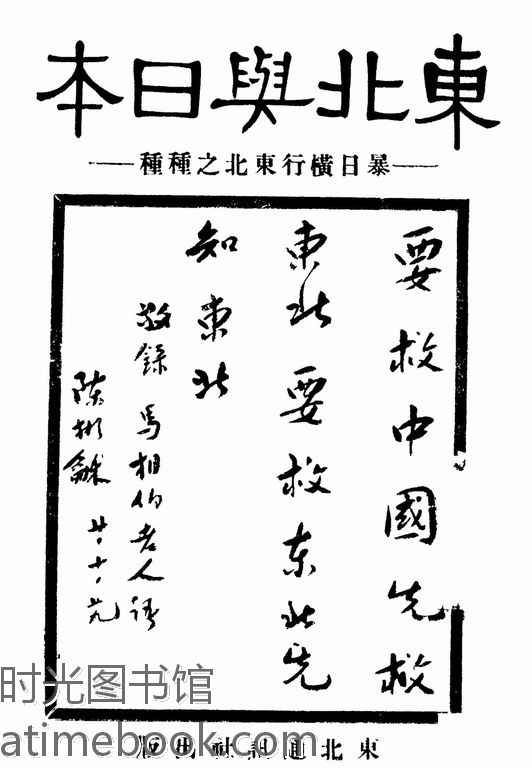 東北與日本
暴日橫行東北之種種
要救中國先救
東北要救東北先
知東北
敬錄 馬相伯老人語
陳彬龢 廿·十·廿九
東北通訊社出版
时光图书馆
atimebook.com